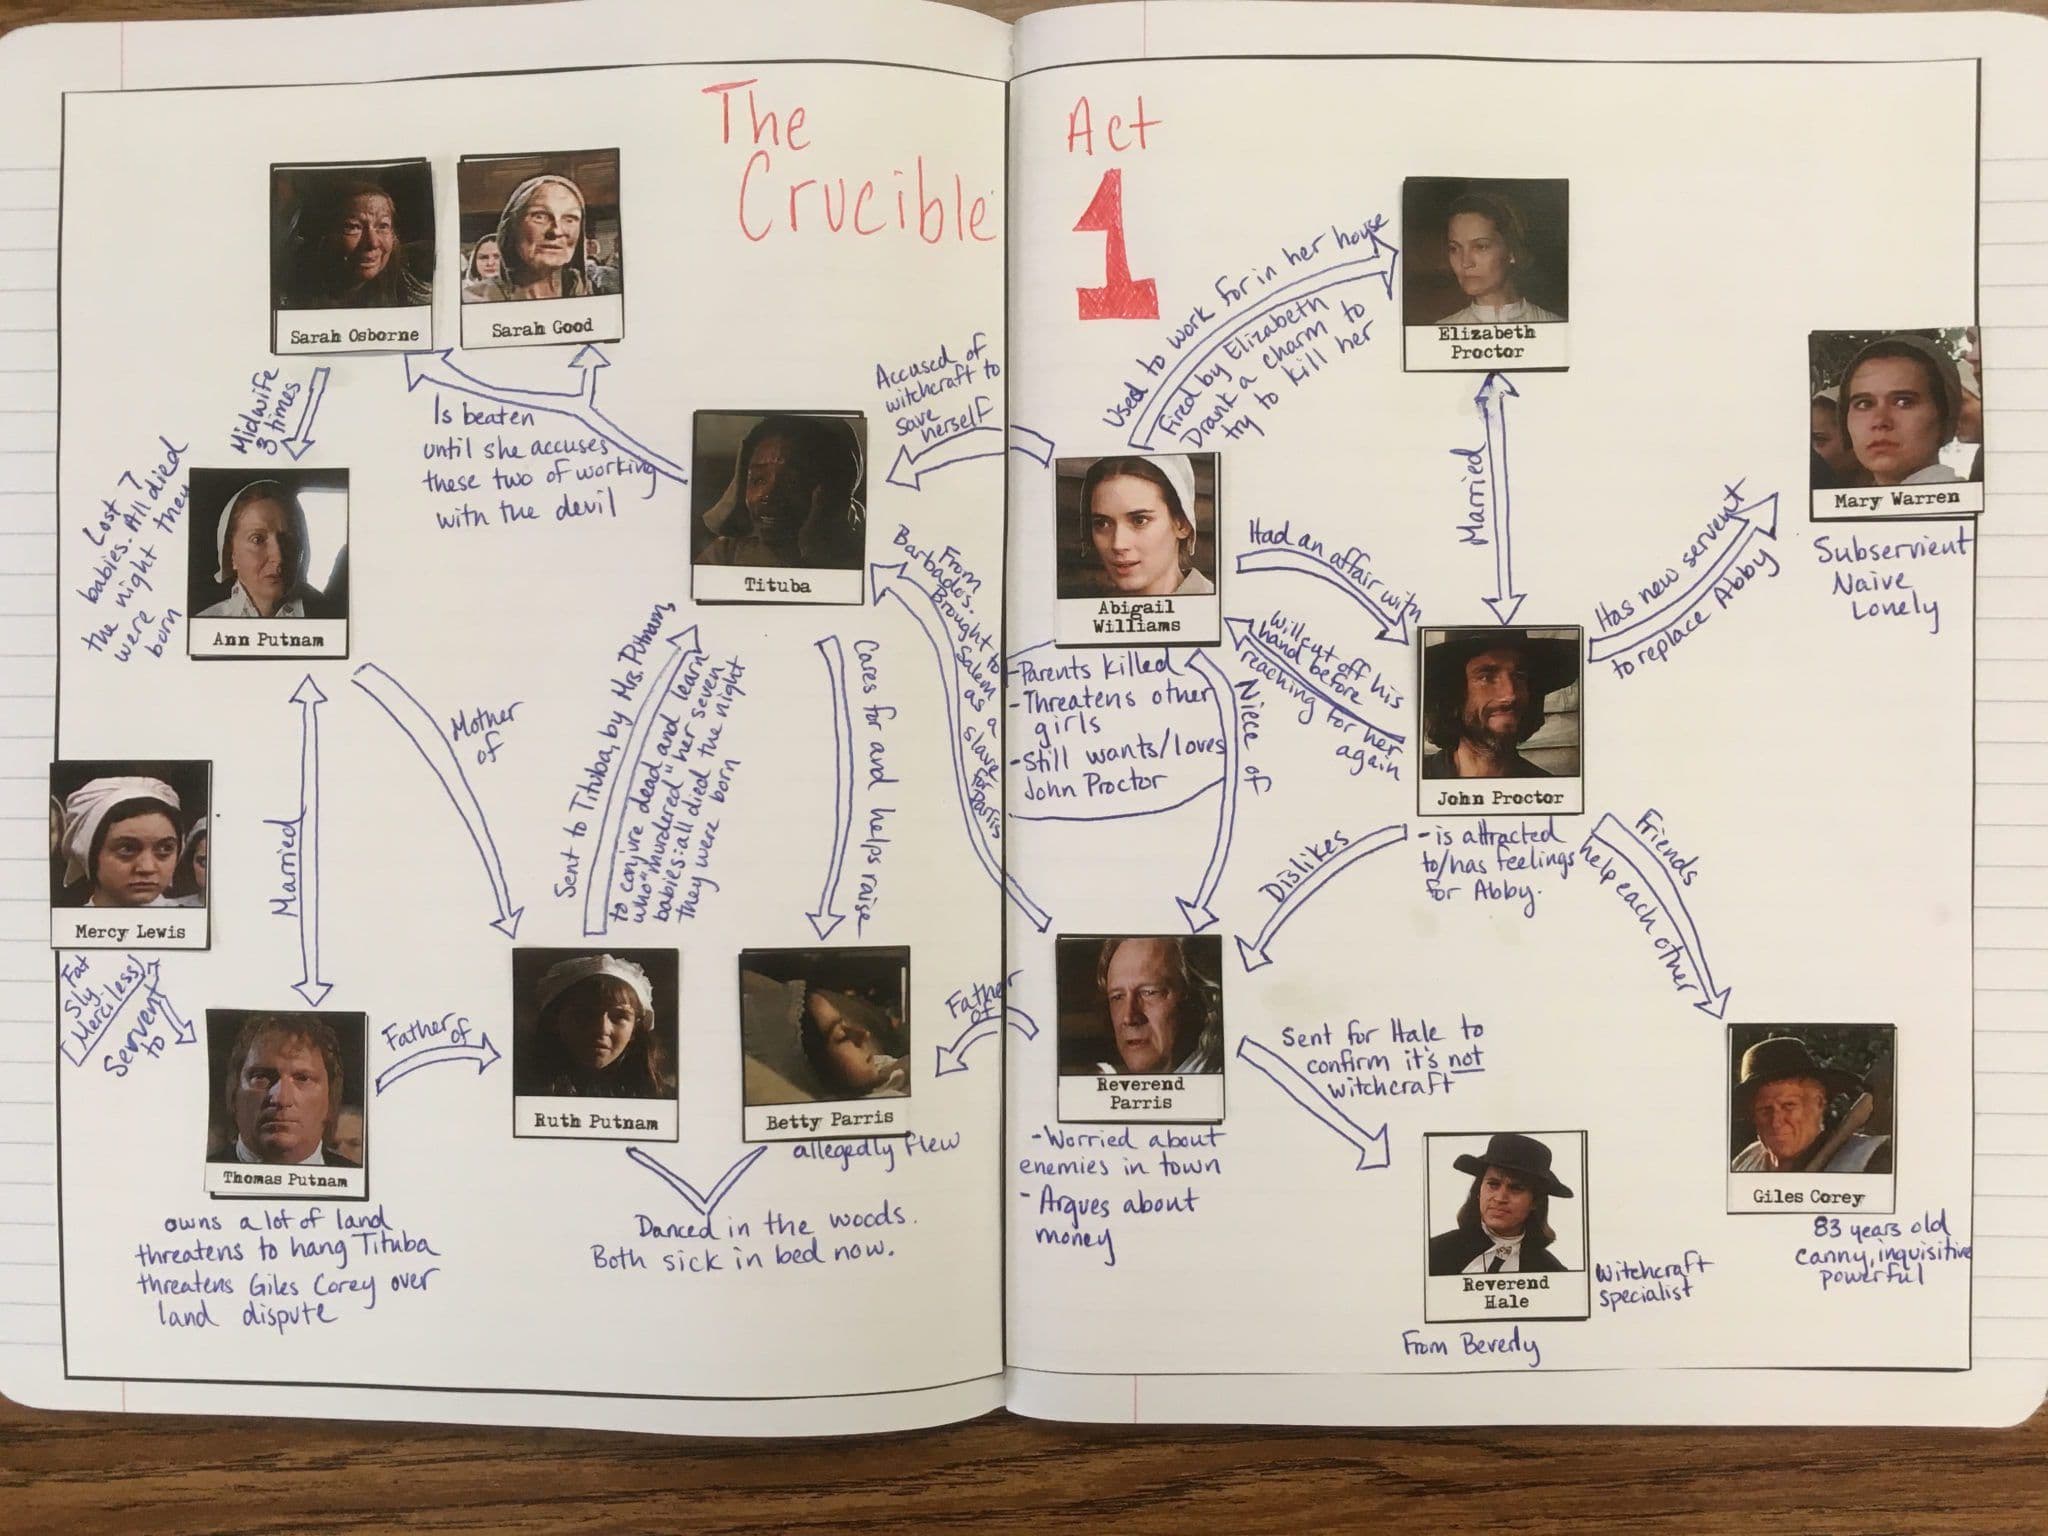 The
Crucible
Act
1
Sarah Osborne
Sarah Good
Midwife
3 times
Is beaten
until she accuses
these two of working
with the devil
Lost 7
babies. All died
the night they
were
born
Ann Putnam
Tituba
Accused of
witchcraft to
save
herself
Used to work for in her house
Fired by Elizabeth
Drank a charm to
try to kill her
Elizabeth
Proctor
Mary Warren
Subservient
Naive
Lonely
Abigail
Williams
-Parents killed
-Threatens other
girls
-Still wants/loves
John Proctor
Had an affair with
Will cut off his
hand before
reaching for her
again
Married
Has new servent
to replace Abby
John Proctor
-is attracted
to/has feelings
for Abby.
Mother
of
Sent to Tituba, by Mrs. Putnam,
to conjure dead and learn
who "murdered" her seven
babies: all died the night
they were born
Cares for and helps raise
From
Barbados.
Brought to
Salem
as a
slave
for
Parris
Niece of
Dislikes
Friends
help each other
Married
Mercy Lewis
Fat
Sly
Merciless
Servent
to
Thomas Putnam
owns a lot of land
threatens to hang Tituba
threatens Giles Corey over
land dispute
Father of
Ruth Putnam
Betty Parris
allegedly flew
Danced in the woods.
Both sick in bed now.
Father
of
Reverend
Parris
-Worried about
enemies in town
-Argues about
money
Sent for Hale to
confirm it's not
witchcraft
Reverend
Hale
Witchcraft
specialist
From Beverly
Giles Corey
83 years old
canny, inquisitive
powerful